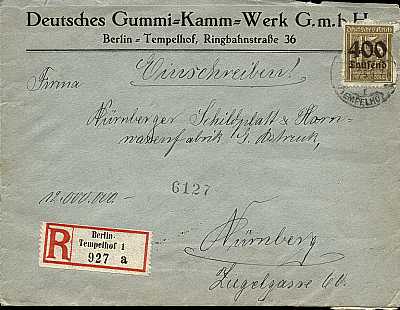 Deutsches Gummi=Kamm=Werk G.m.b.H.
Berlin = Tempelhof, Ringbahnstraße 36
400
Tausend
TEMPELHOF
Einschreiben!
Firma
Nürnberger Schildplatt & Horn-
warenfabrik G.
12.000.000.-
6127
R
Berlin-
Tempelhof 1
927 a
Nürnberg
Zugelgasse 60.